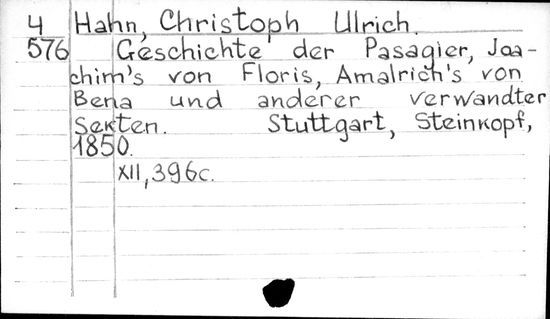 4 Hahn, Christoph Ulrich.
576 Geschichte der Pasagier, Joa-
chim's von Floris, Amalrich's von
Bena und anderer verwandter
Sekten. Stuttgart, Steinkopf,
1850.
XII, 396c.